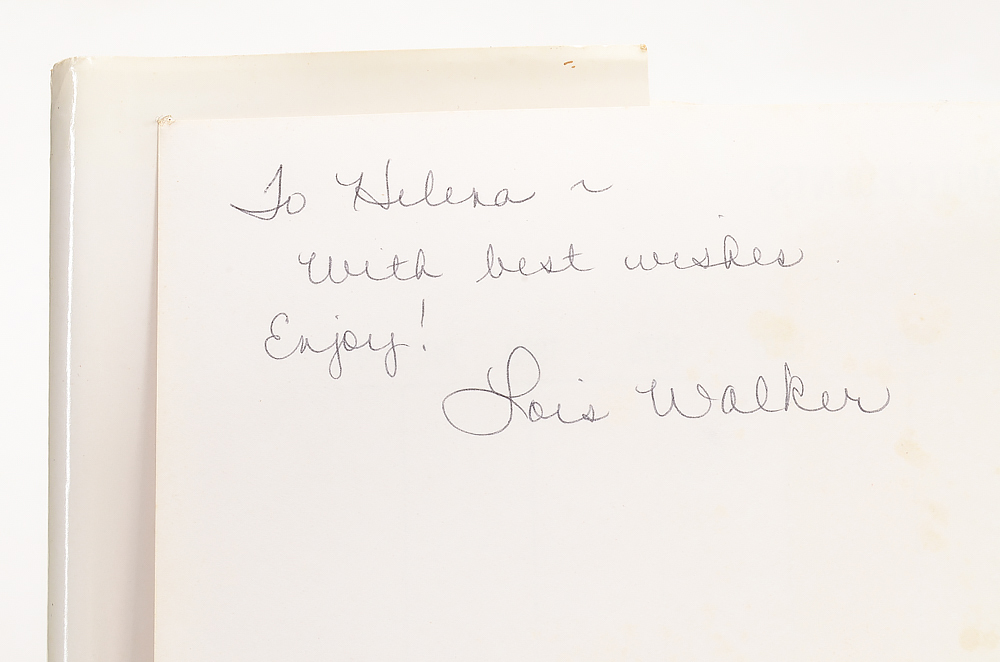 To Helena ~
With best wishes.
Enjoy!
Lois Walker